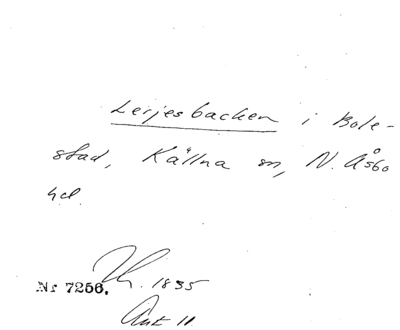 Lerjesbacken i Bole-
stad, Källna sn, N. Åsbo
hd.
Nr 7256. Th. 1835
Ant 11